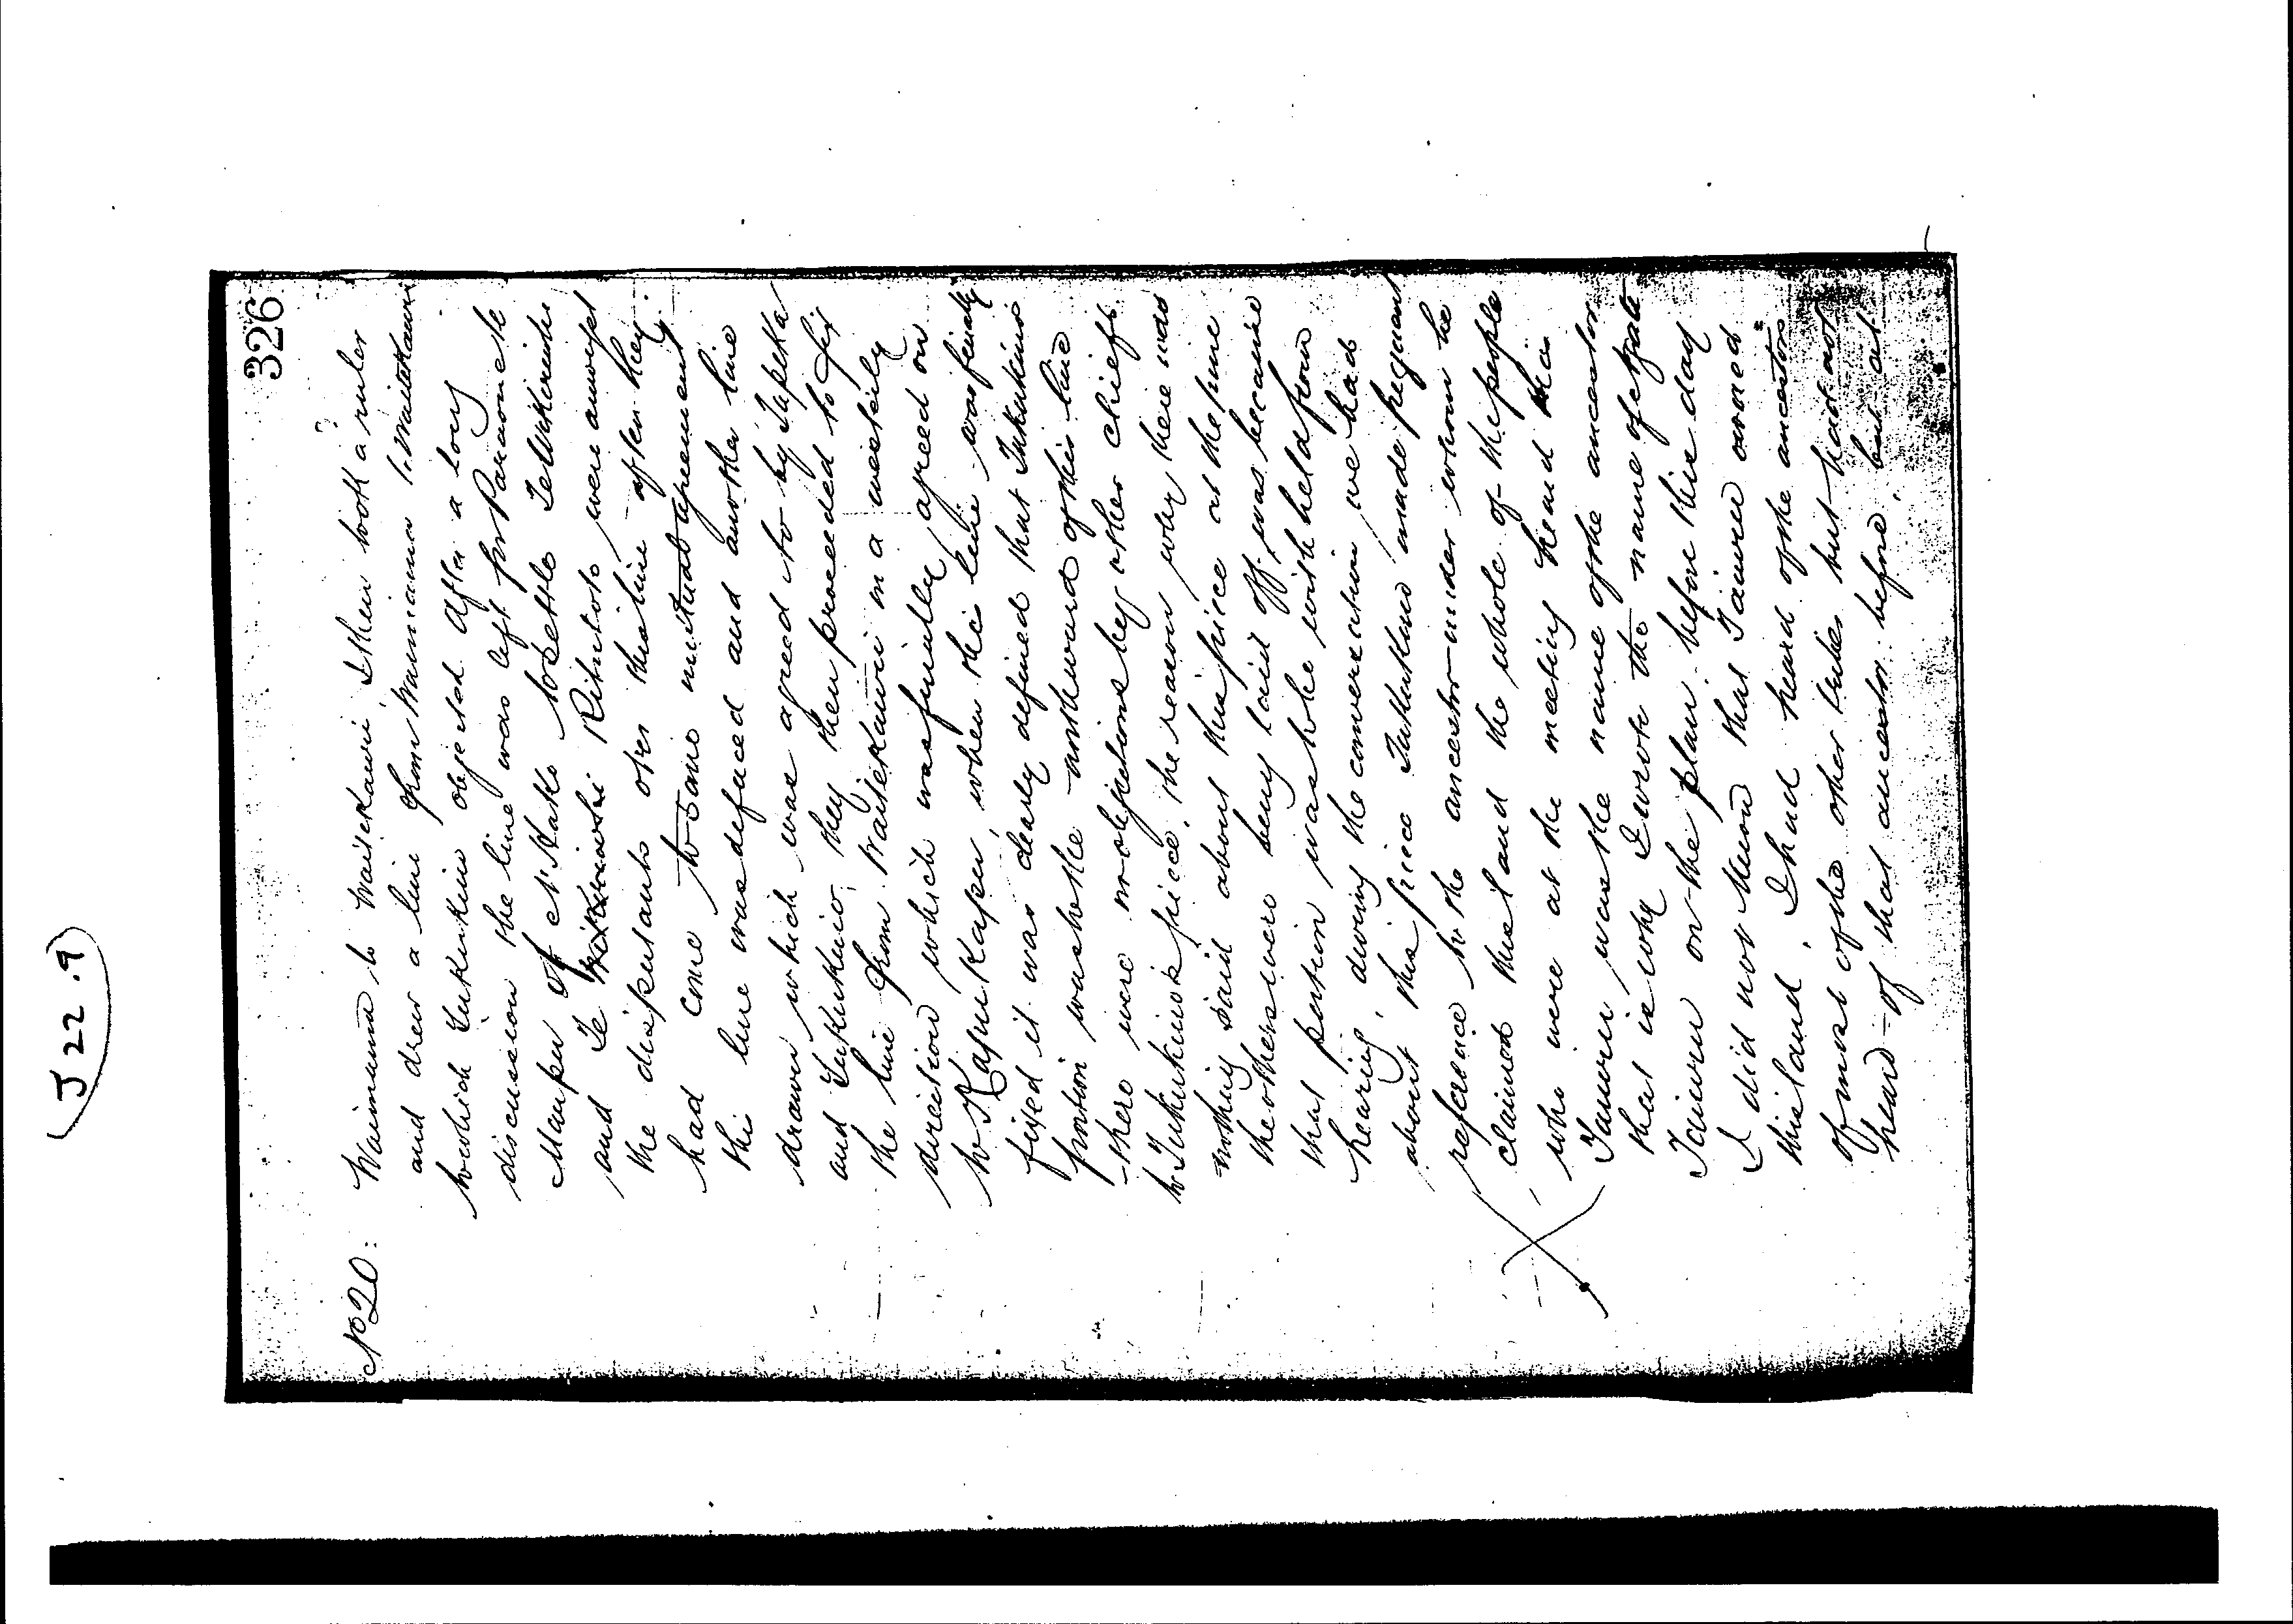 J 22.9
326
No 20: Waimana to Waiiekawa, I then took a ruler
and drew a line from Waimana to
to which Tukukino objected. After a long
discussion the line was left for Paraone
of N'Mako to settle
and Te Ritoto were amongst
the disputants over that line after they
had come to some mutual agreement
the line was defaced and another line
drawn which was agreed to by Tapeka
and Tukukino, they then proceeded to fix
the line from in a westerly
direction which was finally agreed on
to when the line was finally
fixed it was clearly defined that Tukukino's
portion was to the northward of this line
there were no objections by other chiefs
to Tukukino's piece, the reason why there was
nothing said about this piece at the time
the others were being laid off, was because
that portion was to be withheld from
hearing, during the conversation we had
about this piece Tukukino made frequent
reference to the ancestor under whom he
claimed this land the whole of the people
who were at the meeting heard that
Tauru was the name of the ancestor
that is why I wrote the name of
Tauru on the plan, before this day
I did not know that Tauru owned
this land. I had heard of the ancestors
of most of the other tribes but had not
heard of that ancestor before, but at